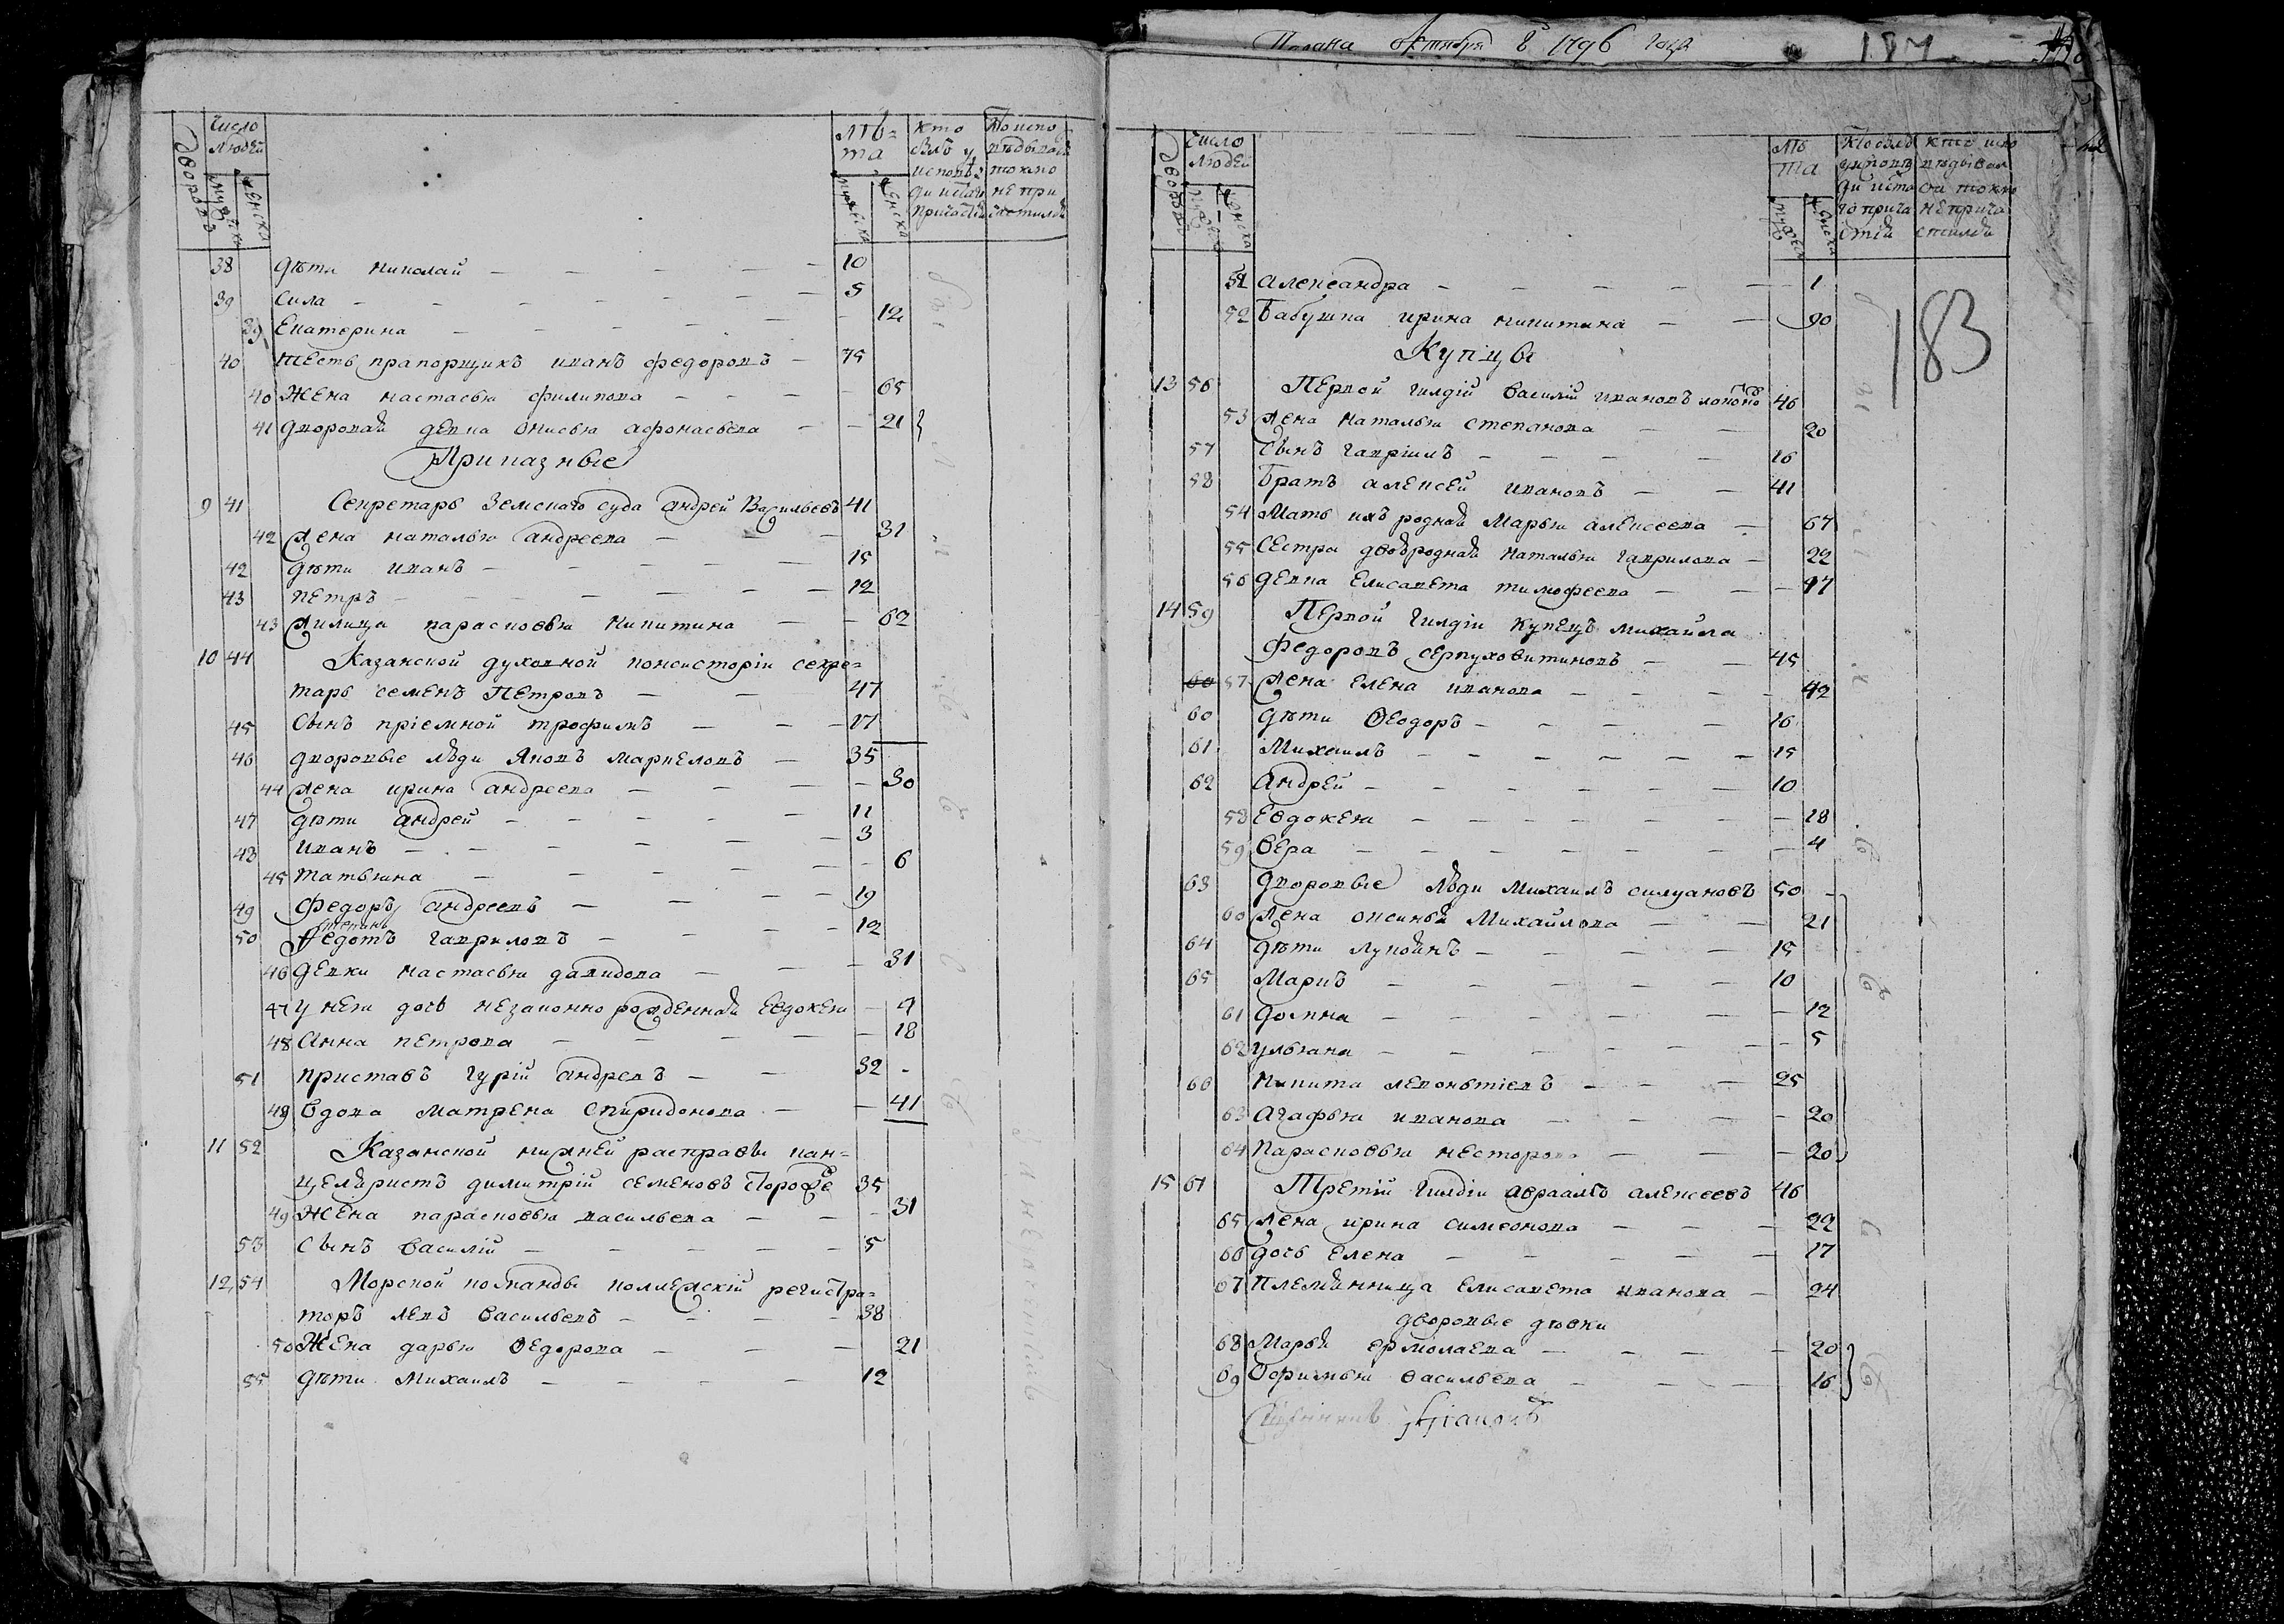 дворовъ
Число людей
мужска
женска
лѣ=та
мужска
женска
Кто былъ у исповѣди и стаго причастія
38 дѣти николай — 10
39 Сила — 5
39 Екатерина — 12
40 тесть прапорщикъ иванъ федоровъ — 75
40 Жена настасья филипова — 65
41 дворовая девка Онисья афонасьева — 21
Приказные
9 41 Секретарь Земского суда андрей Васильевъ 41
42 жена наталья андреева — 31
42 дѣти иванъ — 15
43 петръ — 12
43 жилица парасковья никитина — 62
10 44 Казанской духовной консисторіи секре=
тарь семенъ Петровъ — 47
45 Сынъ пріемной трофимъ — 17
46 дворовые люди Яковъ маркеловъ — 35
44 жена ирина андреева — 30
47 дѣти андрей — 11
48 иванъ — 3
45 татьяна — 6
49 федоръ андреевъ — 19
степанъ
50 федотъ гавриловъ — 12
46 девки настасья давидова — 31
47 у нея дочь незаконно рожденная Евдокея — 4
48 Анна петрова — 18
51 приставъ гурій андревъ — 32
49 вдова матрена спиридонова — 41
11 52 Казанской нижней расправы кан=
целяристъ димитрій семеновъ 35
49 Жена парасковья васильева — 31
53 Сынъ василій — 5
12 54 Морской команды колежскій регистра=
торъ левъ васильевъ — 38
50 Жена дарья Ѳедорова — 21
55 дѣти Михаилъ — 12
октября 8 1796 года
187
дворовъ
Число людей
мужска
женска
лѣта
мужска
женска
183
51 александра — 1
52 бабушка ирина никитина — 90
Купцы
13 56 Первой гилдіи василій ивановъ 46
53 жена наталья степанова — 20
57 сынъ гавріилъ — 16
58 братъ алексей ивановъ — 41
54 Мать ихъ родная марья алексеева — 67
55 сестра двоюродная наталья гаврилова — 22
56 девка елисавета тимофеева — 47
14 59 Первой гилдіи купецъ михайла
федоровъ серпуховитиновъ — 45
57 жена елена иванова — 42
60 дѣти Ѳеодоръ — 16
61 Михаилъ — 15
62 андрей — 10
58 Евдокея — 18
59 вера — 4
63 дворовые люди михаилъ силуановъ 50
60 жена оксинья михайлова — 21
64 дѣти лукоянъ — 15
65 Маркъ — 10
61 домна — 12
62 ульяна — 5
66 никита леоньтіевъ — 25
63 агафья иванова — 20
64 парасковья несторова — 20
15 67 Третій гилдіи авраамъ алексеевъ 46
65 жена ирина симеонова — 22
66 дочь елена — 17
67 племянница елисавета иванова — 24
дворовые дѣвки
68 марья ермолаева — 20
69 Ѳофимья васильева — 16